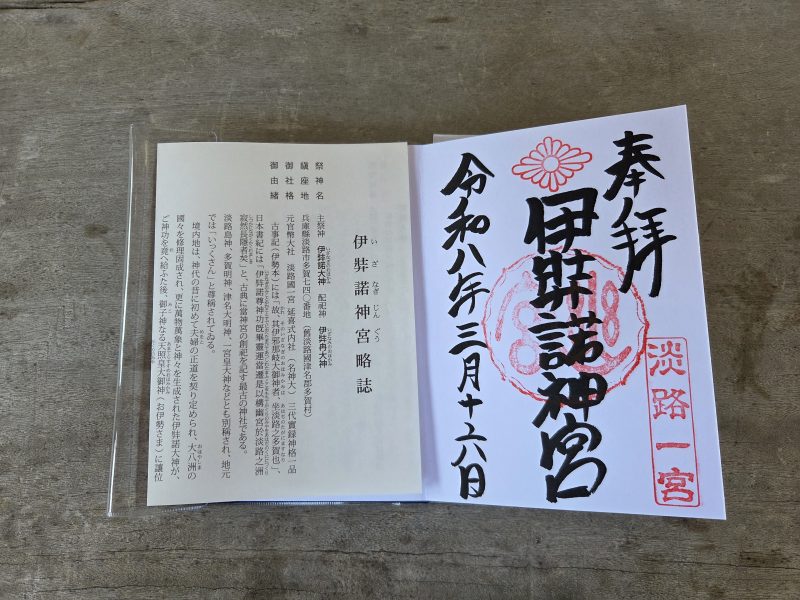 奉拝
淡路一宮
伊弉諾神宮
令和八年三月十六日
伊弉諾神宮略誌
いざなぎじんぐう
祭神名 主祭神 伊弉諾大神 配祀神 伊弉冉大神
鎮座地 兵庫縣淡路市多賀七四〇番地(舊淡路國津名郡多賀村)
御社格 元官幣大社 淡路國一宮 延喜式内社(名神大)三代實録神格一品
御由緒 古事記(伊勢本)には「故、其伊邪那岐大御神者、坐淡路之多賀也」、
日本書紀には「伊弉諾尊神功既畢靈運當遷是以構幽宮於淡路之洲
寂然長隱者矣」と、古典に當神宮の創祀を記す最古の神社である。
淡路島神、多賀明神、津名大明神、一宮皇大神などとも別稱され、地元
では「いっくさん」と尊稱されてゐる。
境内地は、神代の昔に初めて夫婦の正道を契り定められ、大八洲の
國々を修理固成され、更に萬物萬象と神々を生成された伊弉諾大神が、
ご神功を竟へ給ふた後、御子神なる天照皇大御神(お伊勢さま)に讓位